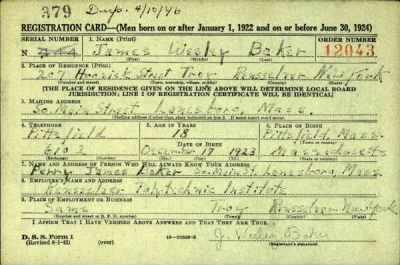 379 Dup. 4/10/46
REGISTRATION CARD—(Men born on or after January 1, 1922 and on or before June 30, 1924)
SERIAL NUMBER 1. NAME (Print) ORDER NUMBER
N James Wesley Baker 12043
(First) (Middle) (Last)
2. PLACE OF RESIDENCE (Print)
207 Hoosick Street Troy Rensselaer New York
(Number and street) (Town, township, village, or city) (County) (State)
[THE PLACE OF RESIDENCE GIVEN ON THE LINE ABOVE WILL DETERMINE LOCAL BOARD
JURISDICTION; LINE 2 OF REGISTRATION CERTIFICATE WILL BE IDENTICAL]
3. MAILING ADDRESS
So. Main Street Lanesboro, Mass.
(Mailing address if other than place indicated on line 2. If same insert word same)
4. TELEPHONE 5. AGE IN YEARS 6. PLACE OF BIRTH
Pittsfield 18 Pittsfield, Mass.
DATE OF BIRTH
December 17 1923 Massachusetts
(Exchange) (Number) (Mo.) (Day) (Yr.) (State or country)
7. NAME AND ADDRESS OF PERSON WHO WILL ALWAYS KNOW YOUR ADDRESS
Perry James Baker So. Main St. Lanesboro, Mass.
8. EMPLOYER'S NAME AND ADDRESS
Rensselaer Polytechnic Institute
9. PLACE OF EMPLOYMENT OR BUSINESS
Same Troy Rensselaer New York
(Number and street or R. F. D. number) (Town) (County) (State)
I AFFIRM THAT I HAVE VERIFIED ABOVE ANSWERS AND THAT THEY ARE TRUE.
D. S. S. Form 1
(Revised 6-1-42) (over)
J. Wesley Baker
(Registrant's signature)